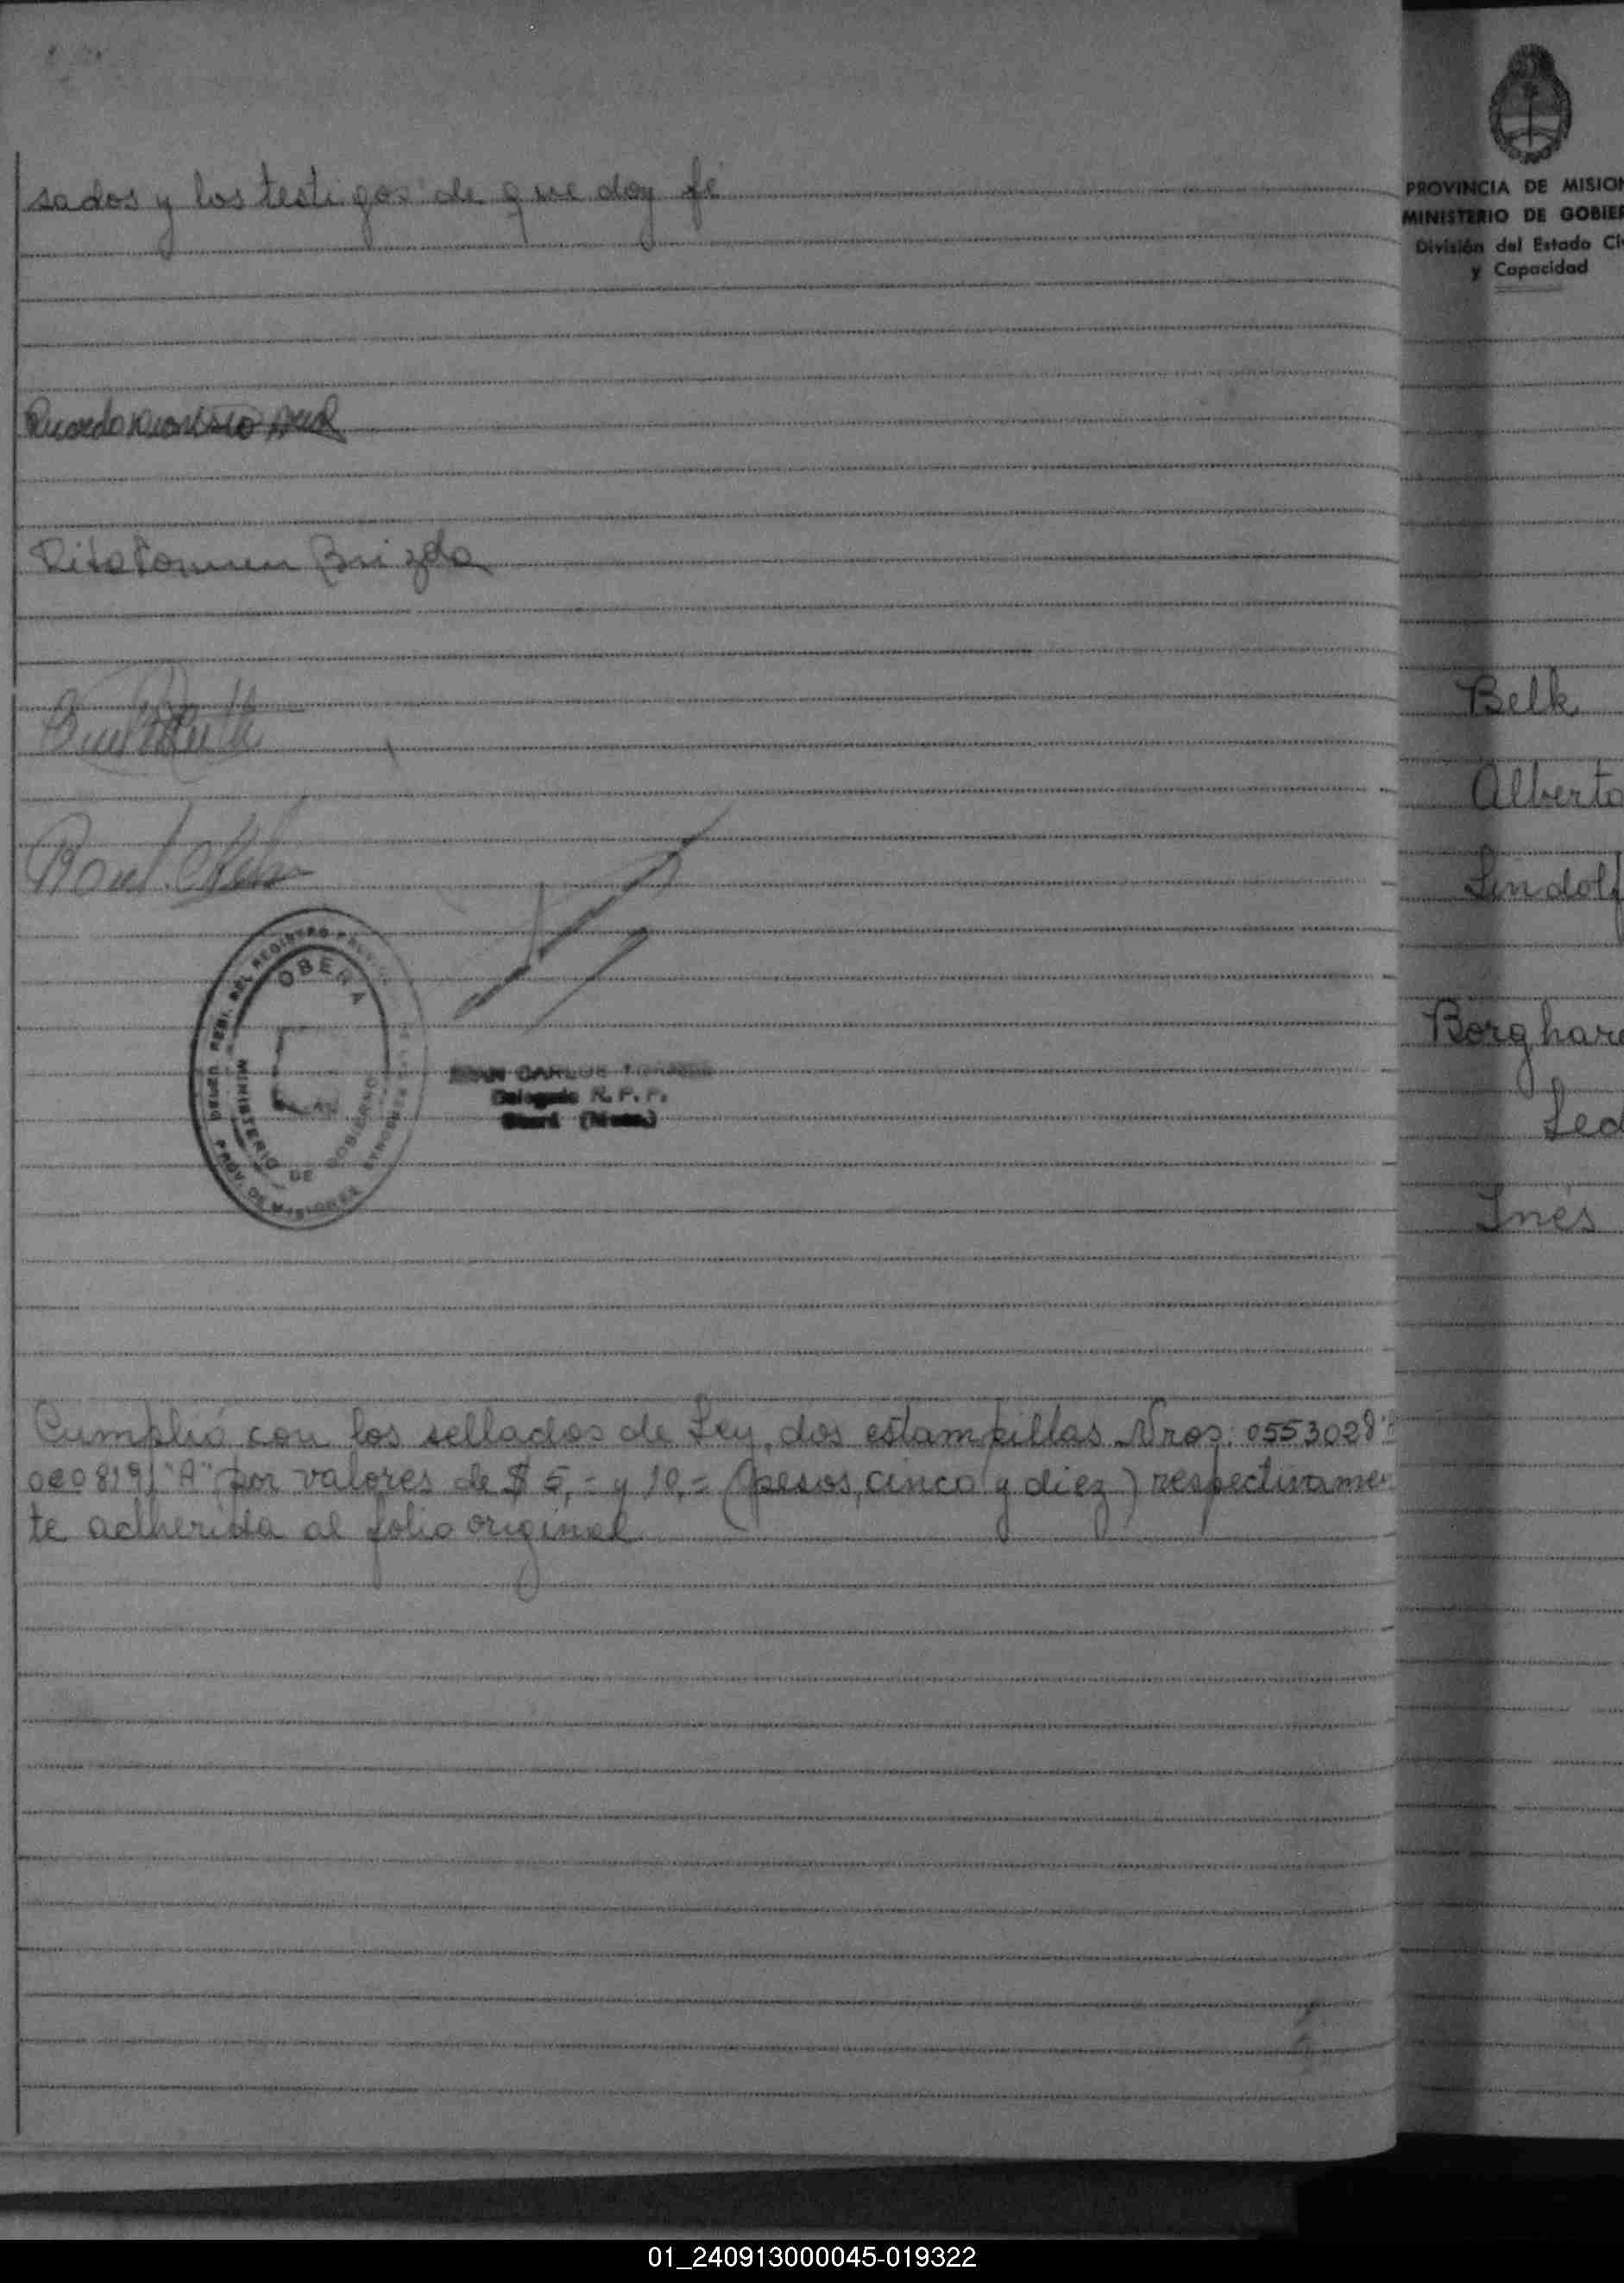 sados y los testigos de que doy fé
Rita Carmen Brizola
Raul
OBERA
MINISTERIO DE GOBIERNO
PROV. DE MISIONES
CARLOS
Delegado R. P. P.
Oberá (Mnes.)
Cumplió con los sellados de Ley, dos estampillas Nros: 0553028
"A" por valores de $ 5,= y 10,= (pesos, cinco y diez) respectivamen
te adherida al folio original
PROVINCIA DE MISION
MINISTERIO DE GOBIER
División del Estado Ci
y Capacidad
Belk
Alberto
Lindolf
Borghard
Led
Inés
01_240913000045-019322